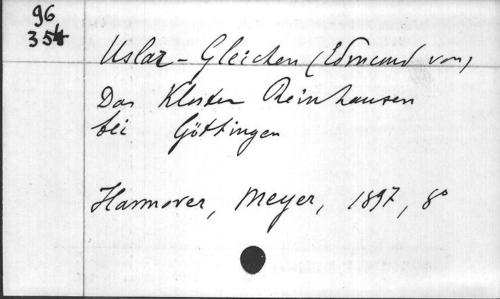 96
354
Uslar-Gleichen (Edmund von)
Das Kloster Reinhausen
bei Göttingen
Hannover, Meyer, 1897, 8°